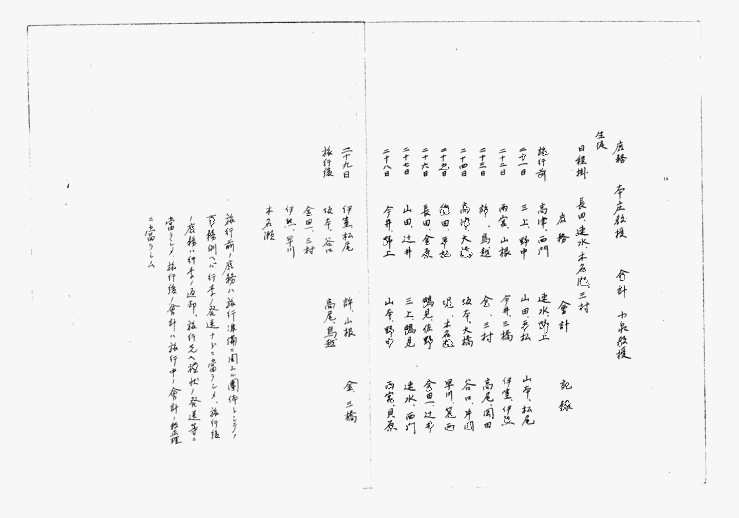 庶務 本庄教授 会計 小泉教授
生徒
日程掛 長田、速水、木名瀬、三村
庶務 会計 記録
旅行前 高津、西門 速水、野上 山本、松尾
二十一日 三上、野中 山田、若松 伊董、伊熊
二十二日 雨宮、山根 今井、三橋 高尾、岡田
二十三日 鳥越 金、三村 谷口
二十四日 高津、大熊 坂本、大橋 早川
二十五日 堤、木名瀬
二十六日 長田、金原 鴨見、佐野 金田一、辻井
二十七日 山田、辻井 三上、鴨見 速水、西門
二十八日 今井、野上 山本、野中 雨宮、貝原
二十九日 伊董、松尾 許、山根 金、三橋
旅行後 坂本、谷口 高尾、鳥越
金田一、三村
伊熊、早川
木名瀬
旅行前ノ庶務ハ旅行準備ニ関スル團体トシテノ
事務例ヘバ行李ノ発送ナドニ當ラシメ、旅行後
ノ庶務ハ行李ノ返却、旅行先ヘ禮状ノ発送等ニ
當ラシメ、旅行後ノ會計ハ旅行中ノ會計ノ整理
ニ當ラシム